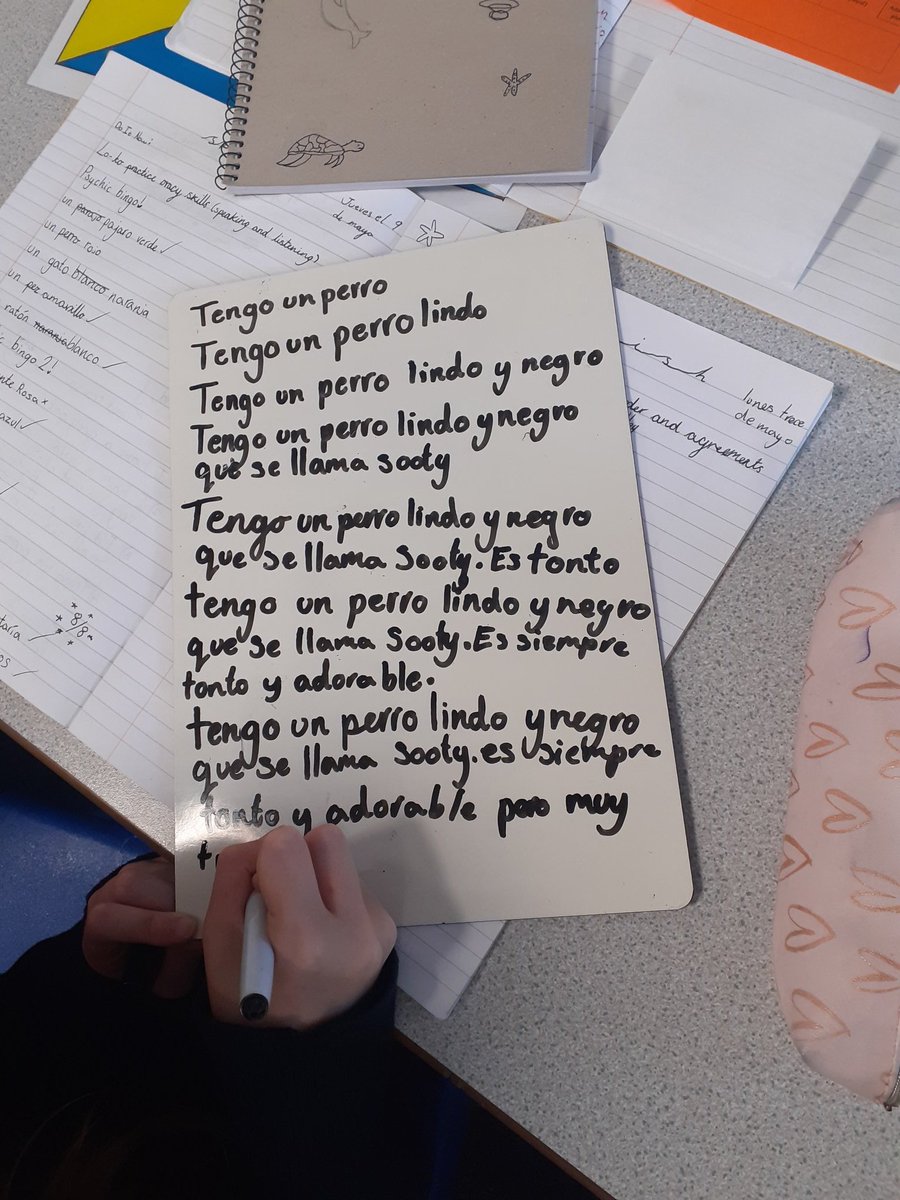 Do It Now!
Lo-to practice oracy skills (speaking and listening)
Psychic bingo!
un parajo pajaro verde ✓
un perro rojo
un gato blanco naranja
un pez amarallo ✓
ratón naranja blanco ✓
bingo 2!
Rosa x
azul ✓
8/8
Jueves el 9
de mayo
Tengo un perro
Tengo un perro lindo
Tengo un perro lindo y negro
Tengo un perro lindo y negro
que se llama sooty
Tengo un perro lindo y negro
que se llama Sooty. Es tonto
tengo un perro lindo y negro
que se llama Sooty. Es siempre
tonto y adorable.
tengo un perro lindo y negro
que se llama Sooty. es siempre
tonto y adorable pero muy
t
ish
lunes trece
de mayo
and agreements